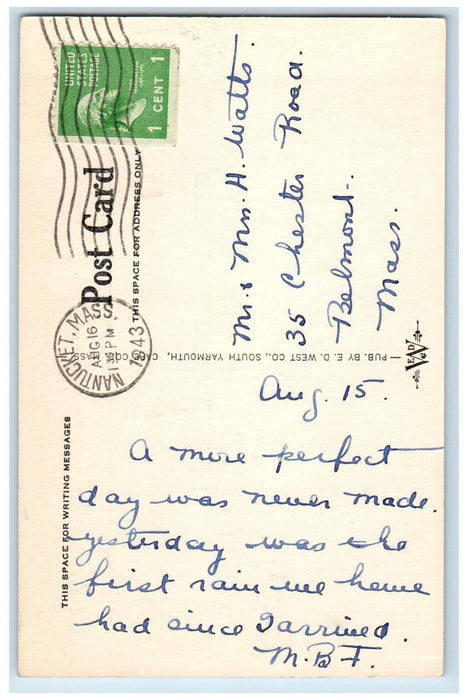 UNITED
STATES
POSTAGE
1 CENT 1
NANTUCKET, MASS.
AUG 16
1943
Post Card
THIS SPACE FOR ADDRESS ONLY
Mr. & Mrs. H. Watts.
35 Chester Road.
Belmont.
Mass.
— PUB. BY E. D. WEST CO., SOUTH YARMOUTH, CAPE COD, MASS.
THIS SPACE FOR WRITING MESSAGES
Aug. 15.
A more perfect
day was never made.
yesterday was the
first rain we heme
had since I arrived.
M.B.F.